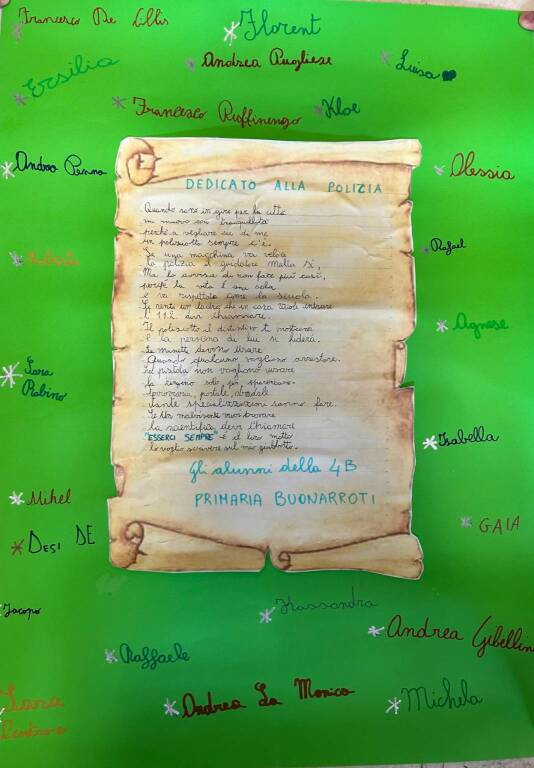 Francesco De Lillis
Florent
Ersilia
Andrea Pugliese
Luisa
Francesco Ruffinengo
Kloe
Andrea Penna
Alessia
Rafael
Roberta
Agnese
Sara
Rabino
Isabella
Mihel
GAIA
DESI DE
DEDICATO ALLA POLIZIA
Quando sono in giro per la città
mi muovo con tranquillità
perché a vegliare su di me
un poliziotto sempre c'è.
Se una macchina va veloce
la polizia il guidatore multa sì,
Ma lo avvisa di non fare più così,
perché la vita è una sola
e va rispettata come la scuola.
Se senti un ladro che in casa vuole entrare
il 112 devi chiamare.
Il poliziotto il distintivo ti mostrerà
e la persona di lui si fiderà.
Le manette devono usare
Quando qualcuno vogliono arrestare.
La pistola non vogliono usare
la tengono solo per spaventare.
ferroviaria, postale, stradale
tante specializzazioni sanno fare.
Se un malvivente vuoi trovare
la scientifica devi chiamare
"ESSERCI SEMPRE" è il loro motto
lo voglio scrivere sul mio giubbotto.
Gli alunni della 4B
PRIMARIA BUONARROTI
Jacopo
Kassandra
Andrea Gibellin
Raffaele
Sara
Andrea La Monica
Michela